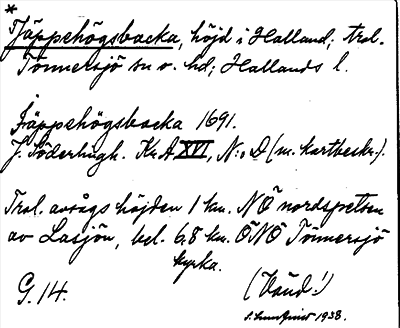 *
Fjäppehögsbacka, höjd i Halland; trol.
Tönnersjö sn o. hd; Hallands l.
Fjäppehögsbacka 1691.
J. Söderhugh. Kr.A XVI, N:o D (m. kartbeskr.).
Trol. avsågs höjden 1 km. NÖ nordspetsen
av Lasjön, bel. 6,8 km. ÖNÖ Tönnersjö
kyrka.
G. 14.
1938.